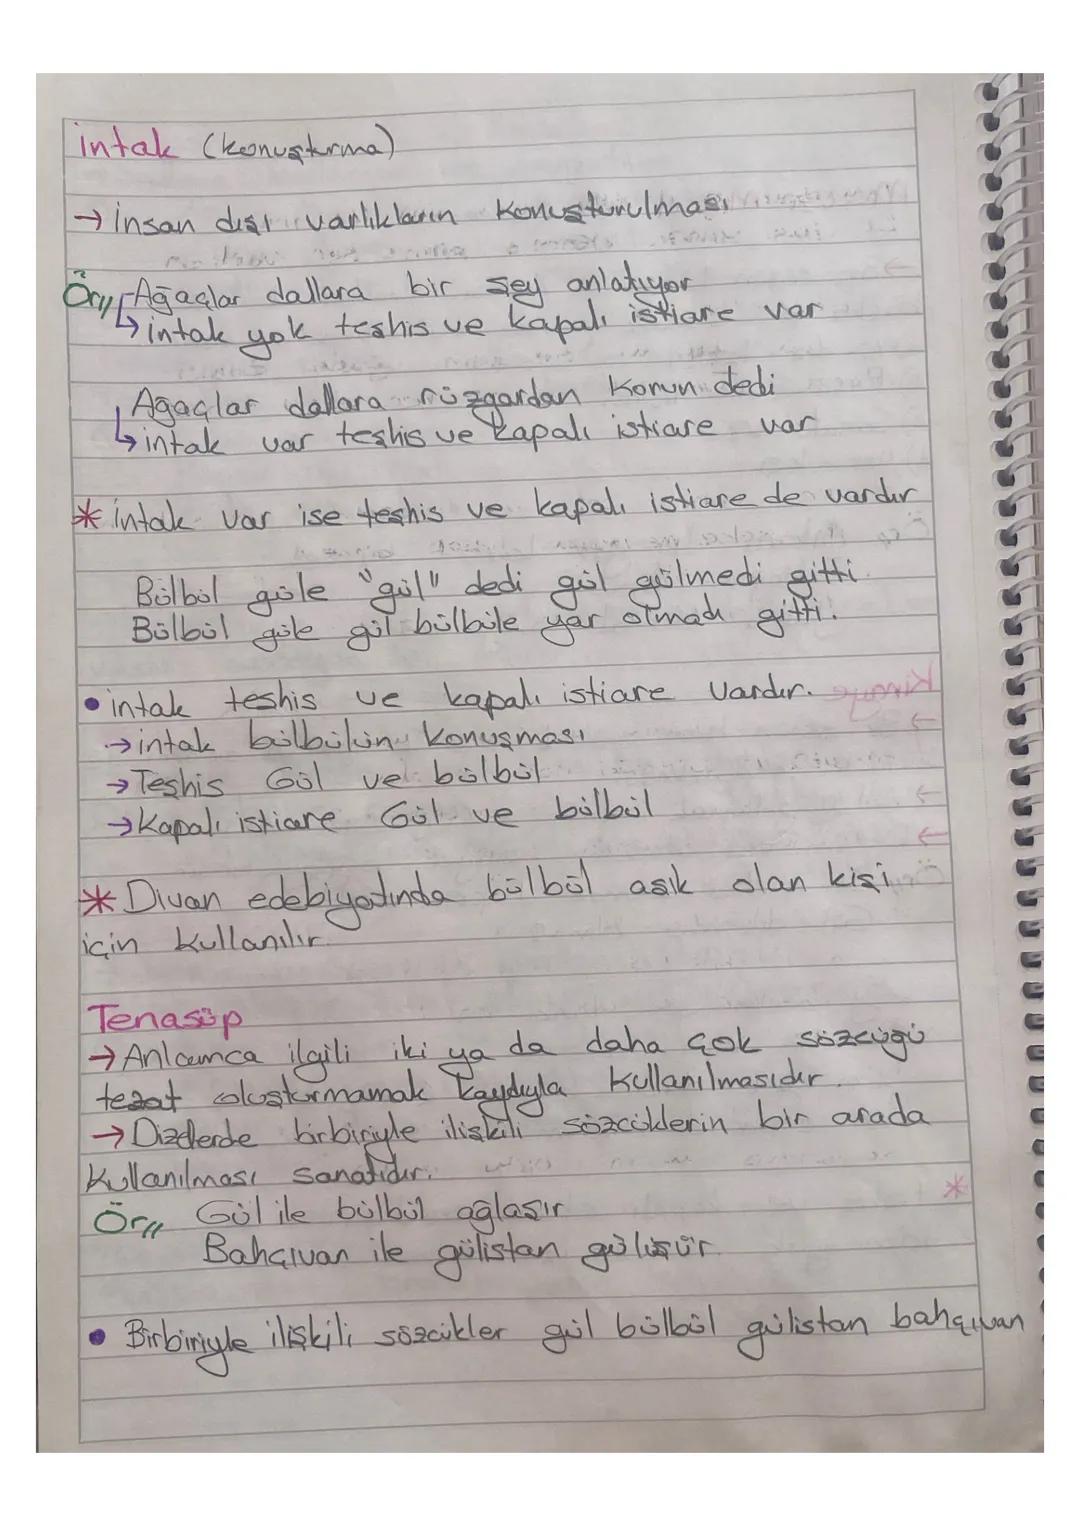 intak (konuşturma)
→ İnsan dışı varlıkların konuşturulması
Ör// Ağaçlar dallara bir şey anlatıyor
↳ intak yok teshis ve kapalı istiare var
Ağaçlar dallara rüzgardan korun dedi
↳ intak var teşhis ve kapalı istiare var
* İntak var ise teşhis ve kapalı istiare de vardır
Bülbül güle "gül" dedi gül gülmedi gitti
Bülbül güle gül bülbüle yar olmadı gitti.
• intak teshis ve kapalı istiare vardır.
→ intak bülbülün konuşması
→ Teşhis Gül ve bülbül
→ Kapalı istiare Gül ve bülbül
* Divan edebiyatında bülbül aşık olan kişi
için kullanılır.
Tenasüp
→ Anlamca ilgili iki ya da daha çok sözcüğü
tezat oluşturmamak kaydıyla kullanılmasıdır.
→ Dizelerde birbiriyle ilişkili sözcüklerin bir arada
kullanılması sanatıdır.
Ör// Gül ile bülbül ağlaşır
Bahçıvan ile gülistan gülüşür
• Birbiriyle ilişkili sözcükler gül bülbül gülistan bahçıvan